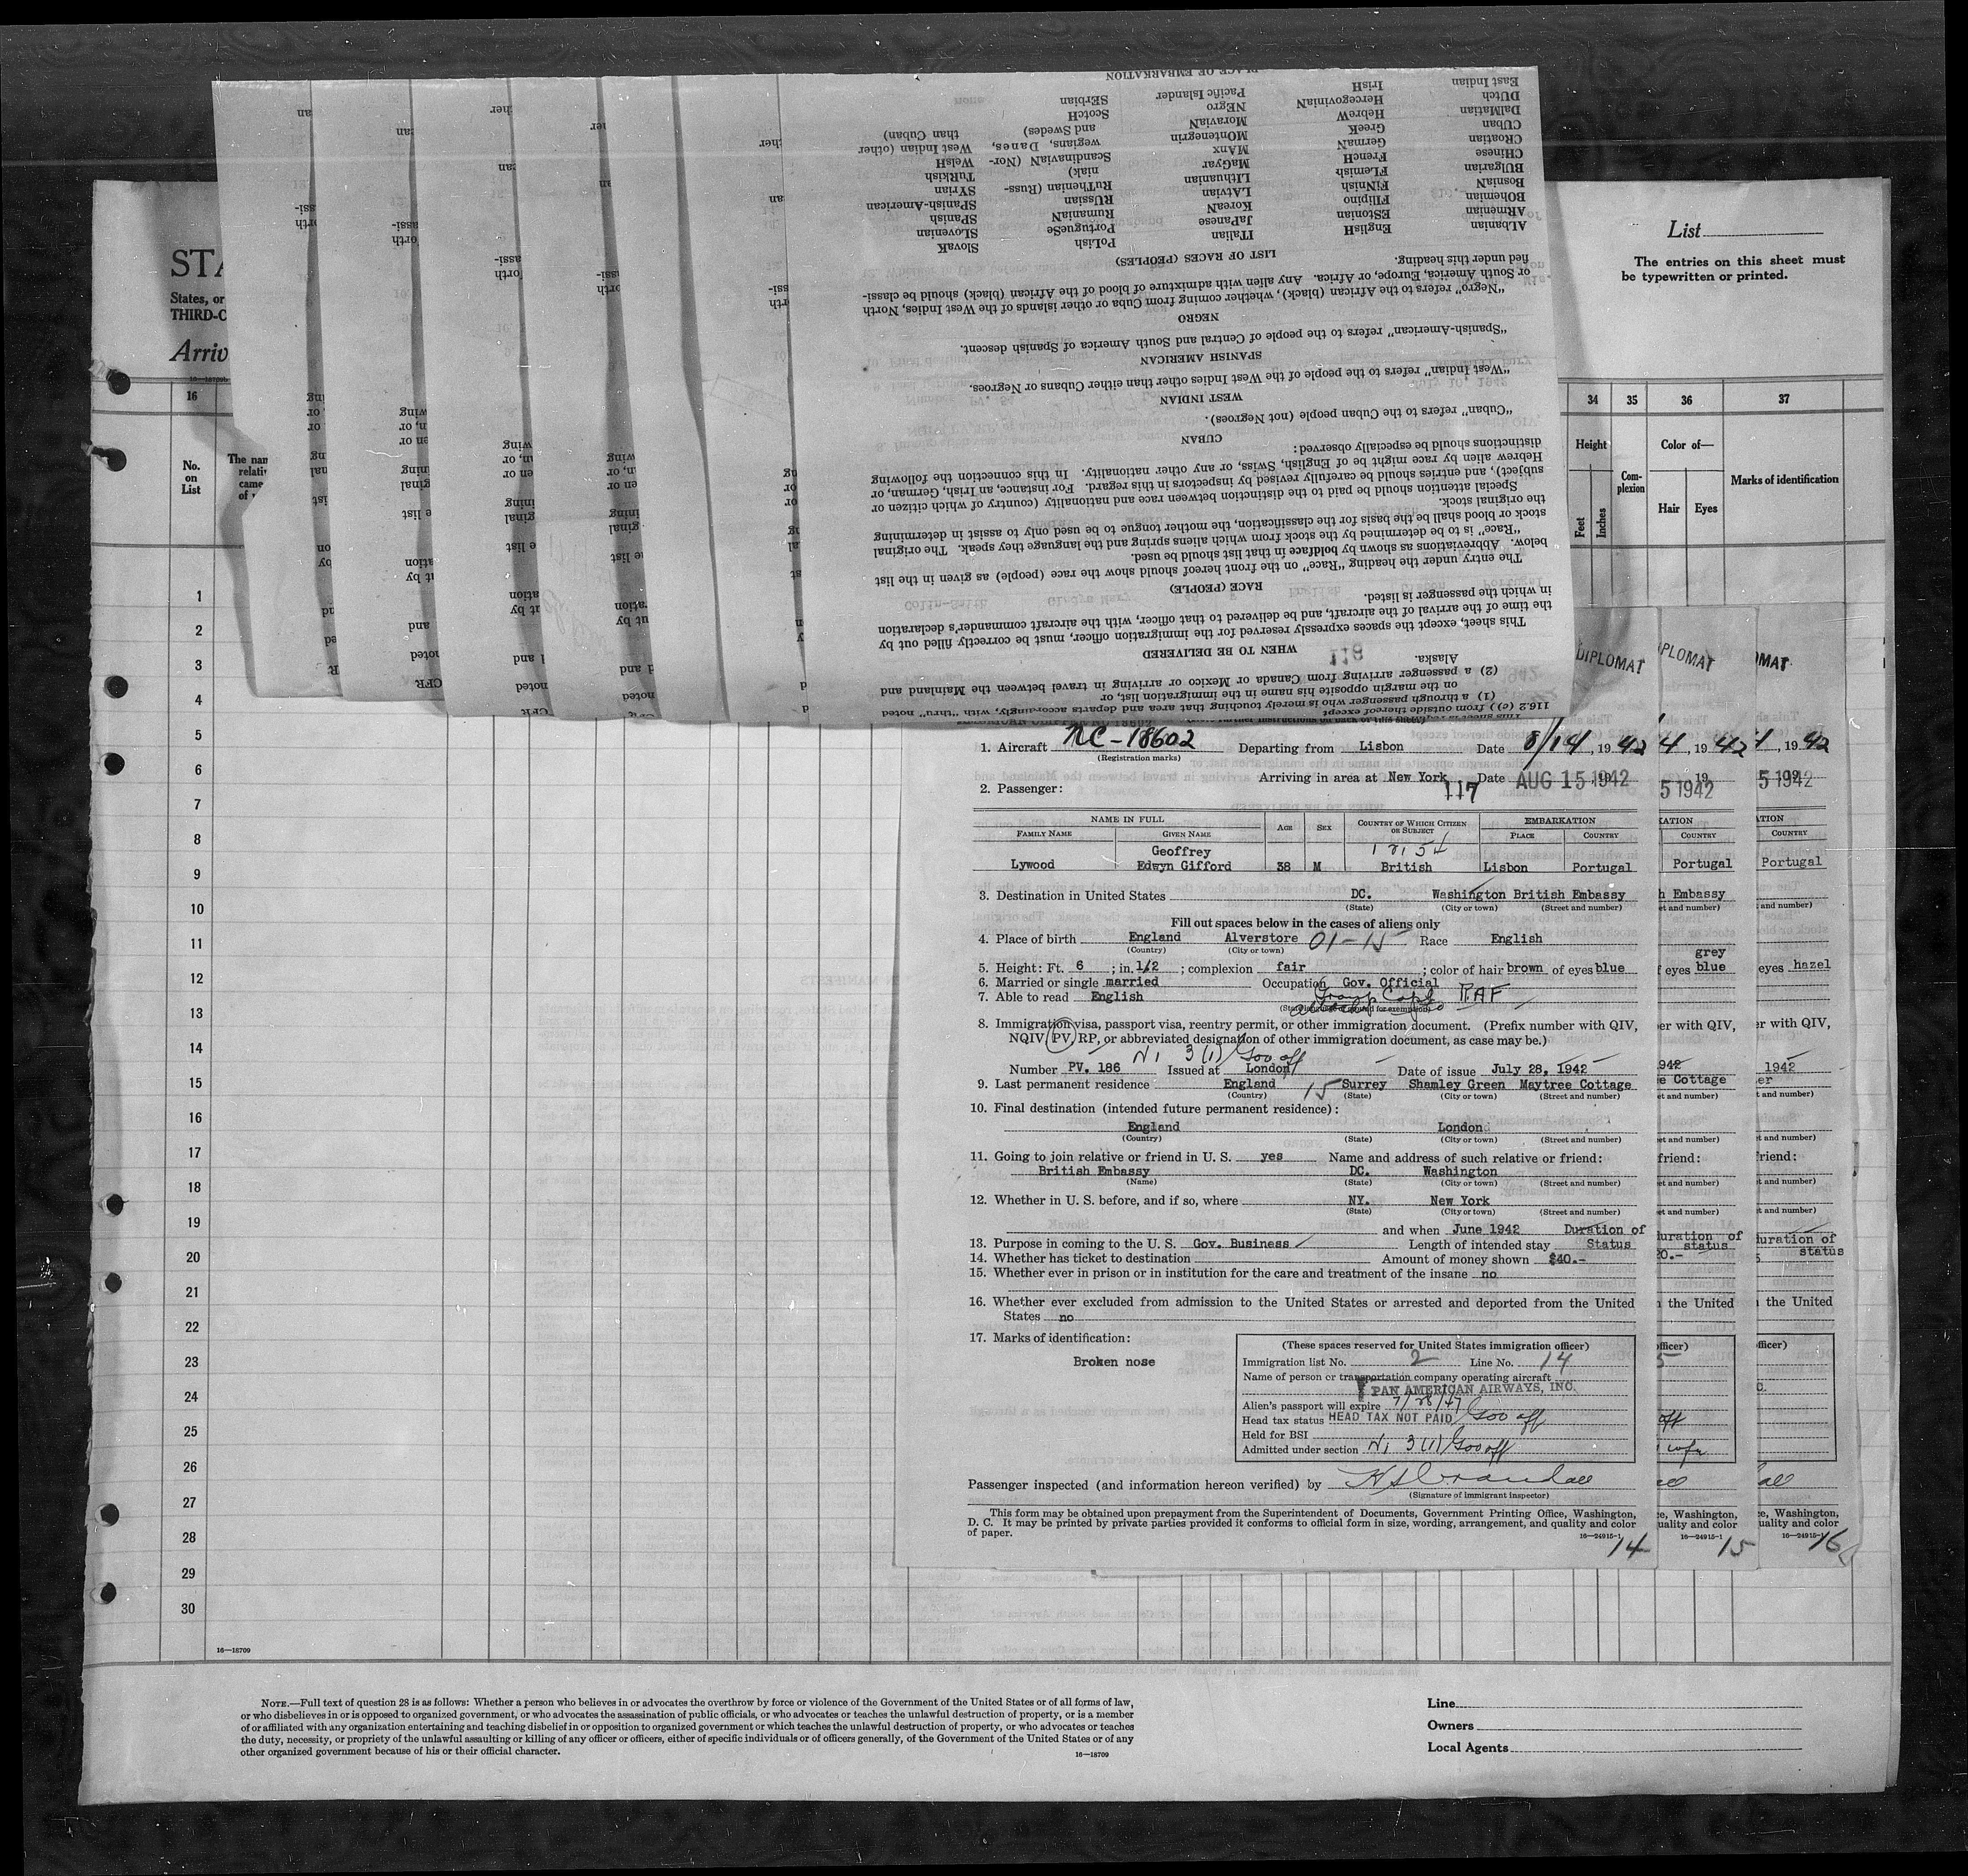 List
The entries on this sheet must
be typewritten or printed.
STA
States, or
THIRD-C
Arriv
16 34 35 36 37
No.
on
List
The nan
relativ
came
of
Height
Feet
Inches
Com-
plexion
Color of—
Hair Eyes
Marks of identification
East Indian IrisH Pacific Islander SErbian
DUtch HercegovinaN NEgro ScotcH
DalMatian HebreW MoraviaN
CUban GreeK MOntenegrin
CRoatian GermaN MAnx
CHinese FrencH MaGyar
BUlgarian FLemish LIthuanian
BosniaN FiNish LAtvian
BOhemian FIlipino KoreaN
ARmenian EStonian JaPanese
ALbanian EnglisH ITalian
PoLish
PortugueSe
RumaniaN
RUssian
RuThenian (Russ-
niak)
ScandinaviaN (Nor-
wegians, Danes,
and Swedes)
SlovaK
SLovenian
SPanish
SPanish-American
SYrian
TuRkish
WelsH
West Indian (other
than Cuban)
LIST OF RACES (PEOPLES)
fied under this heading.
or South America, Europe, or Africa. Any alien with admixture of blood of the African (black) should be classi-
"Negro" refers to the African (black), whether coming from Cuba or other islands of the West Indies, North
NEGRO
"Spanish-American" refers to the people of Central and South America of Spanish descent.
SPANISH AMERICAN
"West Indian" refers to the people of the West Indies other than either Cubans or Negroes.
WEST INDIAN
"Cuban" refers to the Cuban people (not Negroes).
CUBAN
distinctions should be especially observed:
Hebrew alien by race might be of English, Swiss, or any other nationality. In this connection the following
subject), and entries should be carefully revised by inspectors in this regard. For instance, an Irish, German, or
Special attention should be paid to the distinction between race and nationality (country of which citizen or
the original stock.
stock or blood shall be the basis for the classification, the mother tongue to be used only to assist in determining
"Race" is to be determined by the stock from which aliens spring and the language they speak. The original
below. Abbreviations as shown by boldface in that list should be used.
The entry under the heading "Race" on the front hereof should show the race (people) as given in the list
RACE (PEOPLE)
in which the passenger is listed.
the time of the arrival of the aircraft, and be delivered to that officer, with the aircraft commander's declaration
This sheet, except the spaces expressly reserved for the immigration officer, must be correctly filled out by
WHEN TO BE DELIVERED
Alaska.
(2) a passenger arriving from Canada or Mexico or arriving in travel between the Mainland and
on the margin opposite his name in the immigration list, or
(1) a through passenger who is merely touching that area and departs accordingly, with "thru" noted
116.2 (e)) from outside thereof except
118
DIPLOMAT
IPLOMAT
OMAT
1. Aircraft NC-18602 Departing from Lisbon Date 8/14, 1942
(Registration marks)
Arriving in area at New York Date AUG 15 1942
2. Passenger: 117
NAME IN FULL AGE SEX COUNTRY OF WHICH CITIZEN OR SUBJECT EMBARKATION
FAMILY NAME GIVEN NAME PLACE COUNTRY
Geoffrey
Lywood Edwyn Gifford 38 M British Lisbon Portugal
3. Destination in United States DC. Washington British Embassy
(State) (City or town) (Street and number)
Fill out spaces below in the cases of aliens only
4. Place of birth England Alverstore 01-15 Race English
(Country) (City or town)
5. Height: Ft. 6; in. 1/2; complexion fair; color of hair brown of eyes blue
6. Married or single married Occupation Gov. Official
7. Able to read English Group Capt RAF
8. Immigration visa, passport visa, reentry permit, or other immigration document. (Prefix number with QIV,
NQIV, PV, RP, or abbreviated designation of other immigration document, as case may be.)
3(1)/Gov off
Number PV. 186 Issued at London Date of issue July 28, 1942
9. Last permanent residence England 15 Surrey Shamley Green Maytree Cottage
(Country) (State) (City or town) (Street and number)
10. Final destination (intended future permanent residence):
England London
(Country) (State) (City or town) (Street and number)
11. Going to join relative or friend in U. S. yes Name and address of such relative or friend:
British Embassy DC. Washington
(Name) (State) (City or town) (Street and number)
12. Whether in U. S. before, and if so, where NY. New York
(State) (City or town) (Street and number)
and when June 1942 Duration of
13. Purpose in coming to the U. S. Gov. Business Length of intended stay Status
14. Whether has ticket to destination Amount of money shown $40.-
15. Whether ever in prison or in institution for the care and treatment of the insane no
16. Whether ever excluded from admission to the United States or arrested and deported from the United
States no
17. Marks of identification:
Broken nose
(These spaces reserved for United States immigration officer)
Immigration list No. 2 Line No. 14
Name of person or transportation company operating aircraft
PAN AMERICAN AIRWAYS, INC.
Alien's passport will expire 7/28/47
Head tax status HEAD TAX NOT PAID / Gov off
Held for BSI
Admitted under section 3(1)/Gov off
Passenger inspected (and information hereon verified) by
(Signature of immigrant inspector)
This form may be obtained upon prepayment from the Superintendent of Documents, Government Printing Office, Washington,
D. C. It may be printed by private parties provided it conforms to official form in size, wording, arrangement, and quality and color
of paper.
16—24915-1
14 15 16
1
2
3
4
5
6
7
8
9
10
11
12
13
14
15
16
17
18
19
20
21
22
23
24
25
26
27
28
29
30
16—18709
NOTE.—Full text of question 28 is as follows: Whether a person who believes in or advocates the overthrow by force or violence of the Government of the United States or of all forms of law,
or who disbelieves in or is opposed to organized government, or who advocates the assassination of public officials, or who advocates or teaches the unlawful destruction of property, or is a member
of or affiliated with any organization entertaining and teaching disbelief in or opposition to organized government or which teaches the unlawful destruction of property, or who advocates or teaches
the duty, necessity, or propriety of the unlawful assaulting or killing of any officer or officers, either of specific individuals or of officers generally, of the Government of the United States or of any
other organized government because of his or their official character.
16—18709
Line
Owners
Local Agents